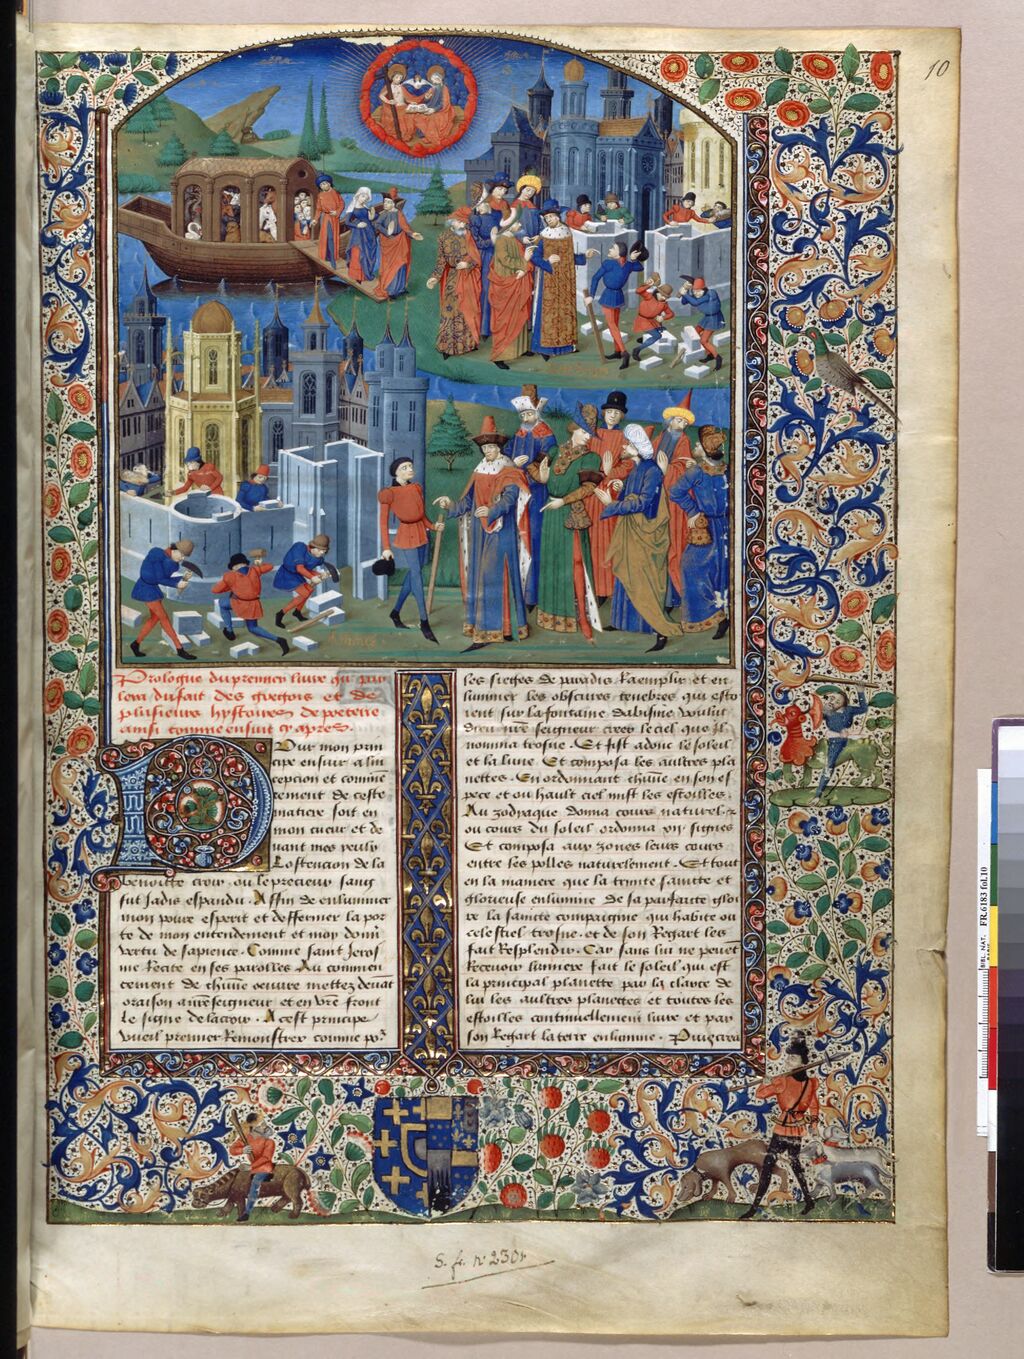 10
Prologue du premier livre qui par
lera du fait des gregois et de
plusieurs hystoires de poeterie
ainsi comme ensuit cy apres
Pour mon prin
cipe ensuir a lin
cepcion et comme
cement de ceste
matiere soit en
mon cueur et de
uant mes yeulx
Lostencion de la
benoitte croix ou le precieux sang
fut Jadis espandu. Affin de enluminer
mon poure esperit et deffermer la por
te de mon entendement et moy donner
vertu de sapience. Comme saint Jeros
me Recite en ses parolles Au commen
cement de chascune oeuure mettez deuant
oraison a nostre seigneur et en vostre front
Le signe de la croix. A cest principe
vueil premier Remonstrer comme po
les sieges de paradis Raemplir et en
luminer les obscures tenebres qui esto
ient sur la fontaine dabisme voulut
dieu nostre seigneur creer le ciel que il
nomma trosne. Et fist adonc le soleil
et la lune. Et composa les aultres pla
nettes. En ordonnant chascune en son es
pece et ou hault ciel mist les estoilles.
Au zodyaque donna cours naturel. &
ou cours du soleil ordonna xii signes
Et composa aux zones leurs cours
entre les polles naturelement. Et tout
en la maniere que la trinite saincte et
glorieuse enlumine de sa parfaicte gloi
re la saincte compaignie qui habite ou
celestiel trosne. et de son Regart les
fait Resplendir. Car sans lui ne peuet
Recevoir lumiere fait le soleil qui est
la principal planette par la clarte de
lui les aultres planettes et toutes les
estoilles continuellement luire et par
son Regart la terre enlumine. Puis crea
S. fr. n° 2301
BIBL. NAT. FR. 6183 fol.10